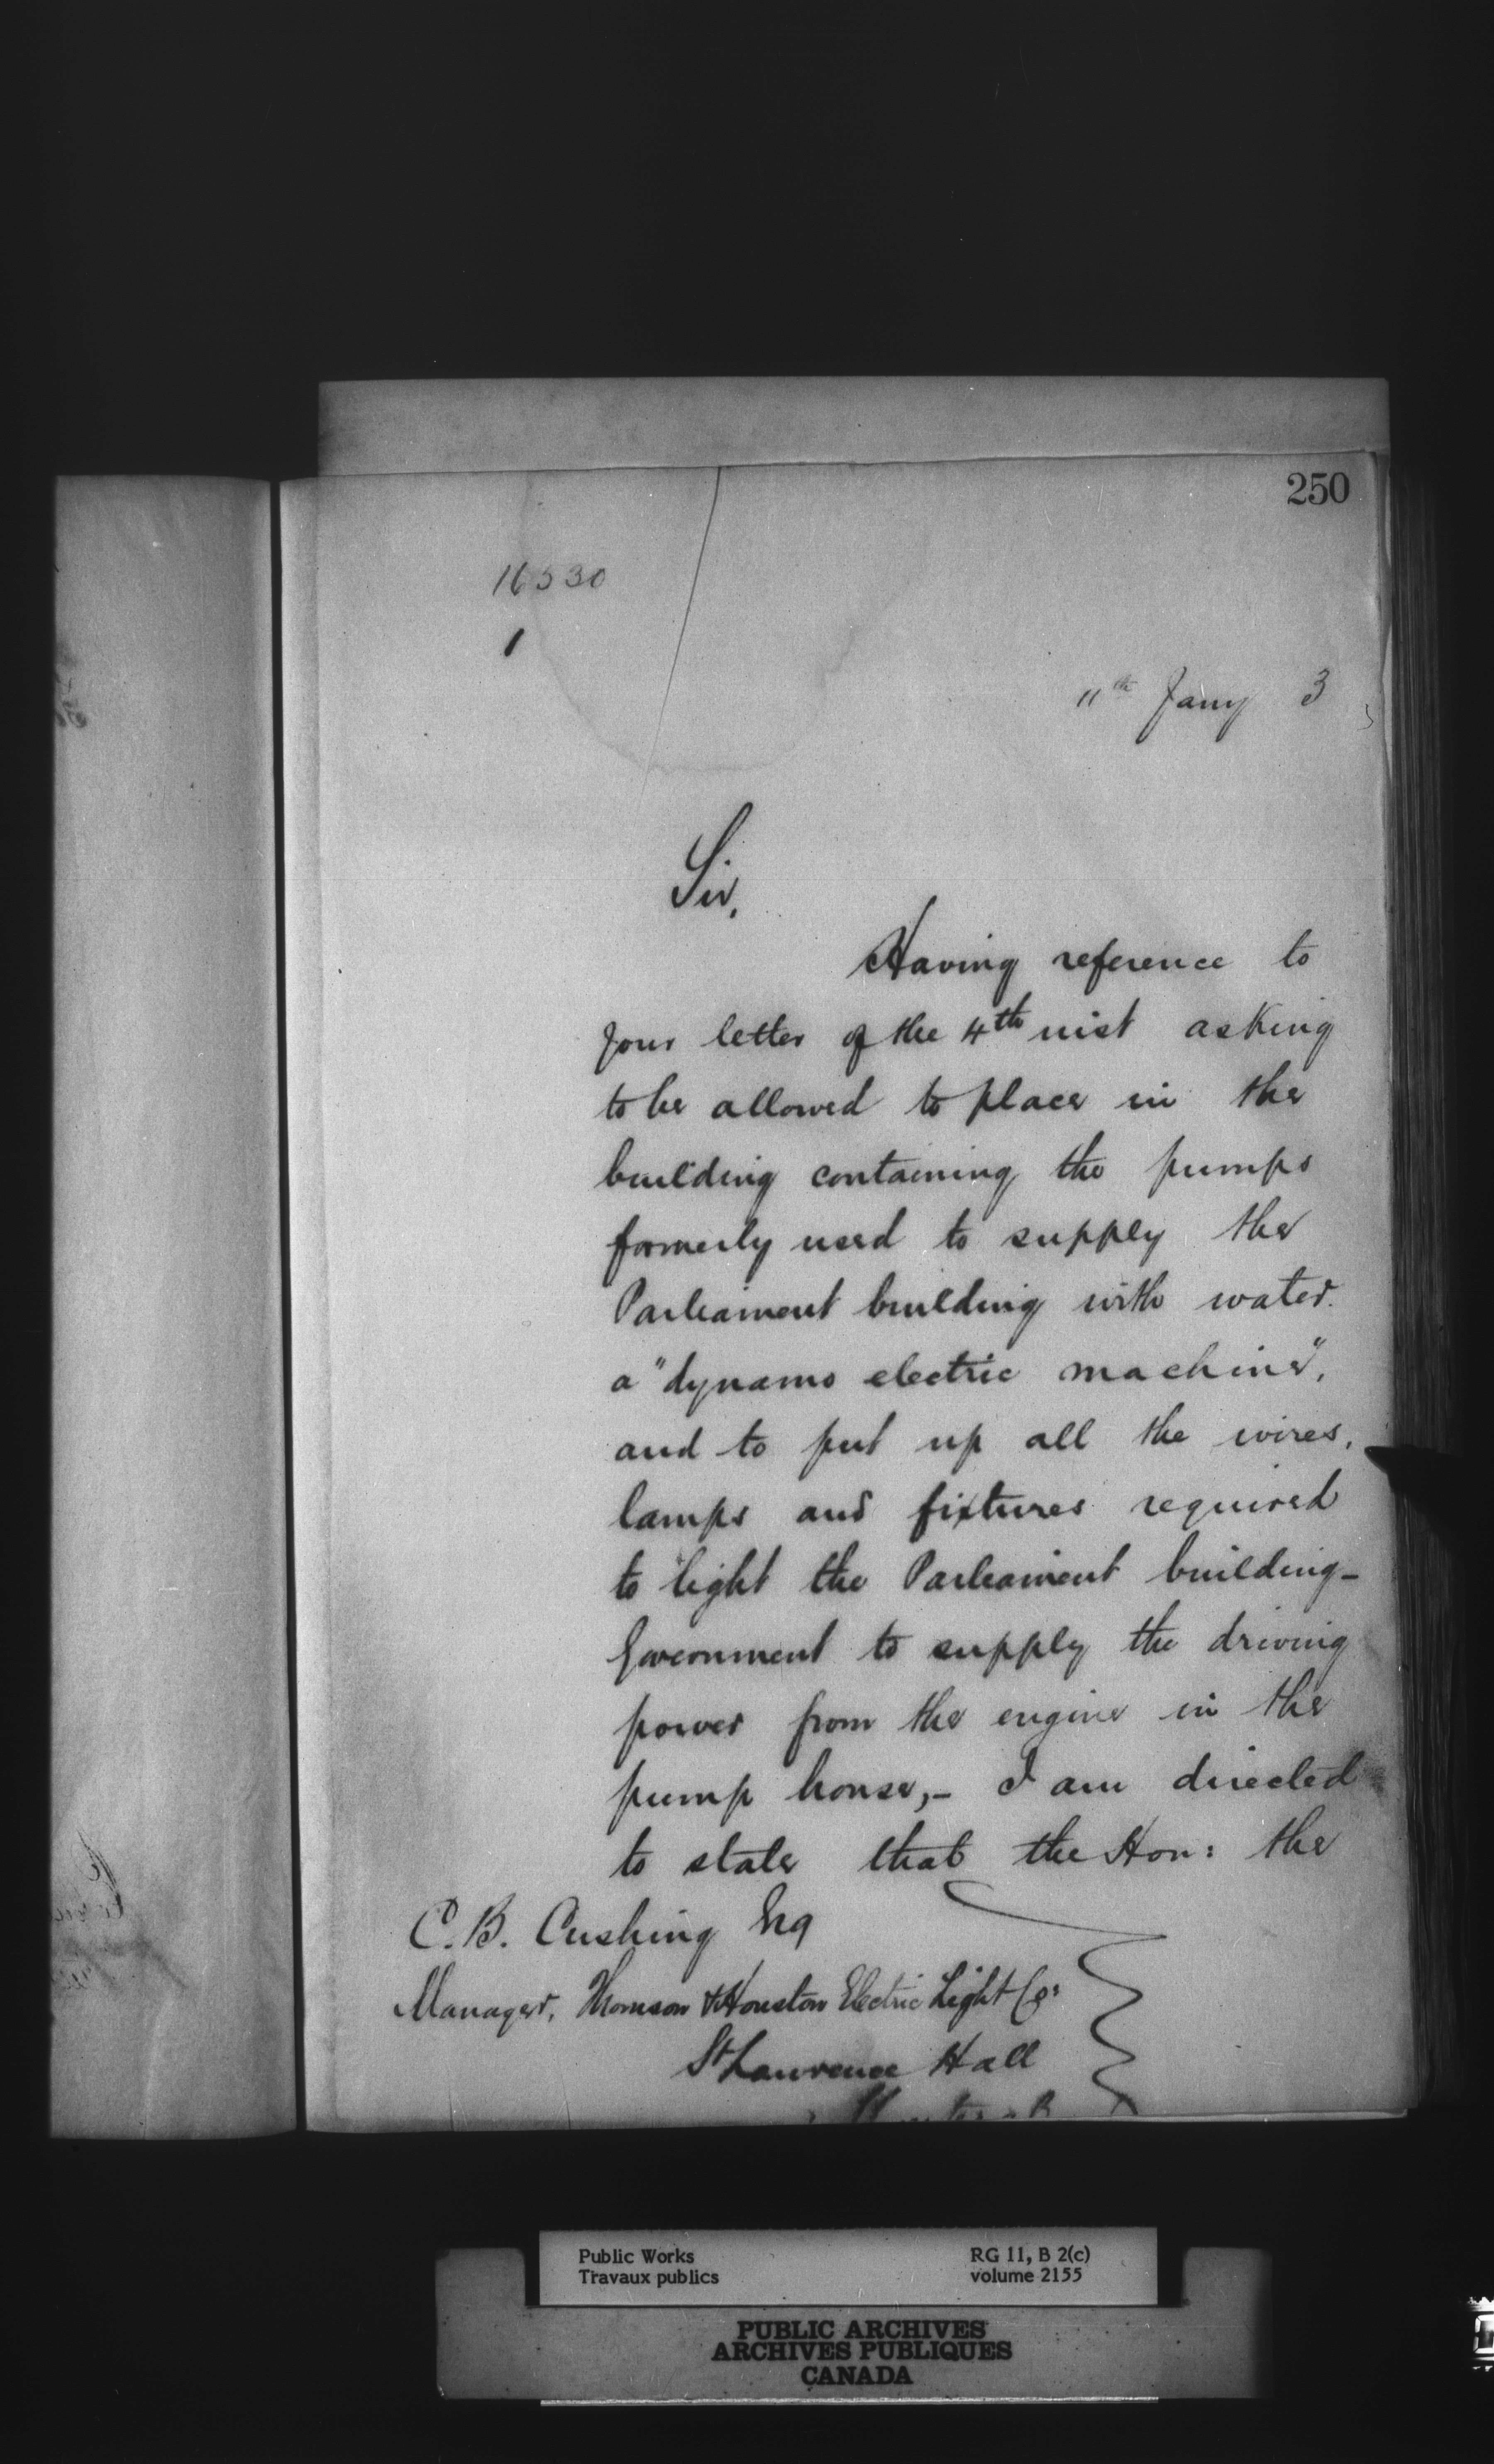 250
16530
1
11th Jany 3
Sir,
Having reference to
your letter of the 4th inst asking
to be allowed to place in the
building containing the pumps
formerly used to supply the
Parliament building with water.
a "dynamo electric machine",
and to put up all the wires,
lamps and fixtures required
to light the Parliament building-
Government to supply the driving
power from the engine in the
pump house,- I am directed
to state that the Hon: the
C. B. Cushing Esq
Manager, Thomson & Houston Electric Light Co:
St Lawrence Hall
Montreal
Public Works
Travaux publics
RG 11, B 2(c)
volume 2155
PUBLIC ARCHIVES
ARCHIVES PUBLIQUES
CANADA